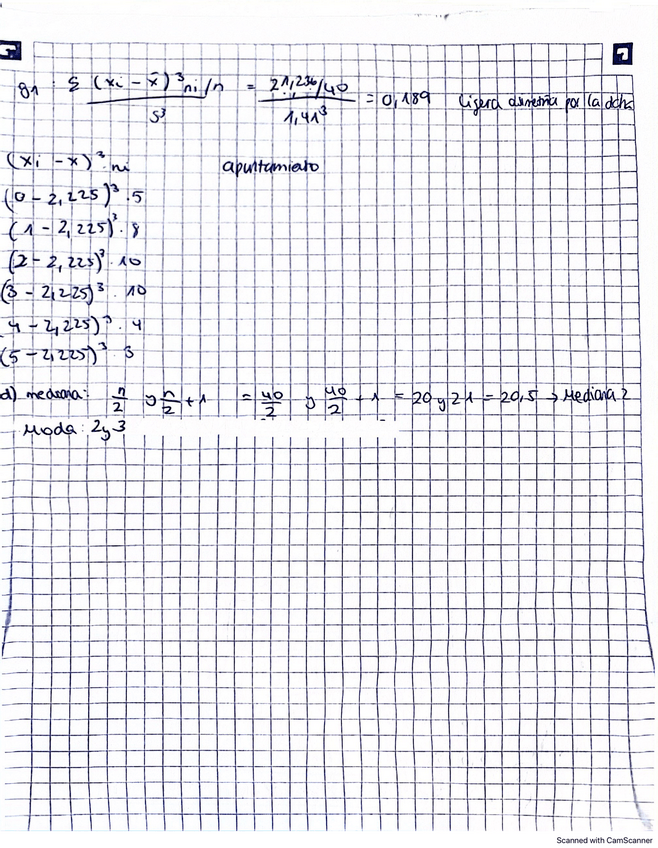 g1 : Σ (xi - x̄)³ ni/n / S³ = 21,236/40 / 1,41³ = 0,189 ligera asimetria por la dcha
(xi - x)³ ni apuntamiento
(0 - 2,225)³ · 5
(1 - 2,225)³ · 8
(2 - 2,225)³ · 10
(3 - 2,225)³ · 10
4 - 2,225)³ · 4
(5 - 2,225)³ · 3
d) mediana: n/2 y n/2 + 1 = 40/2 y 40/2 + 1 = 20 y 21 = 20,5 → Mediana 2
Moda: 2 y 3
Scanned with CamScanner